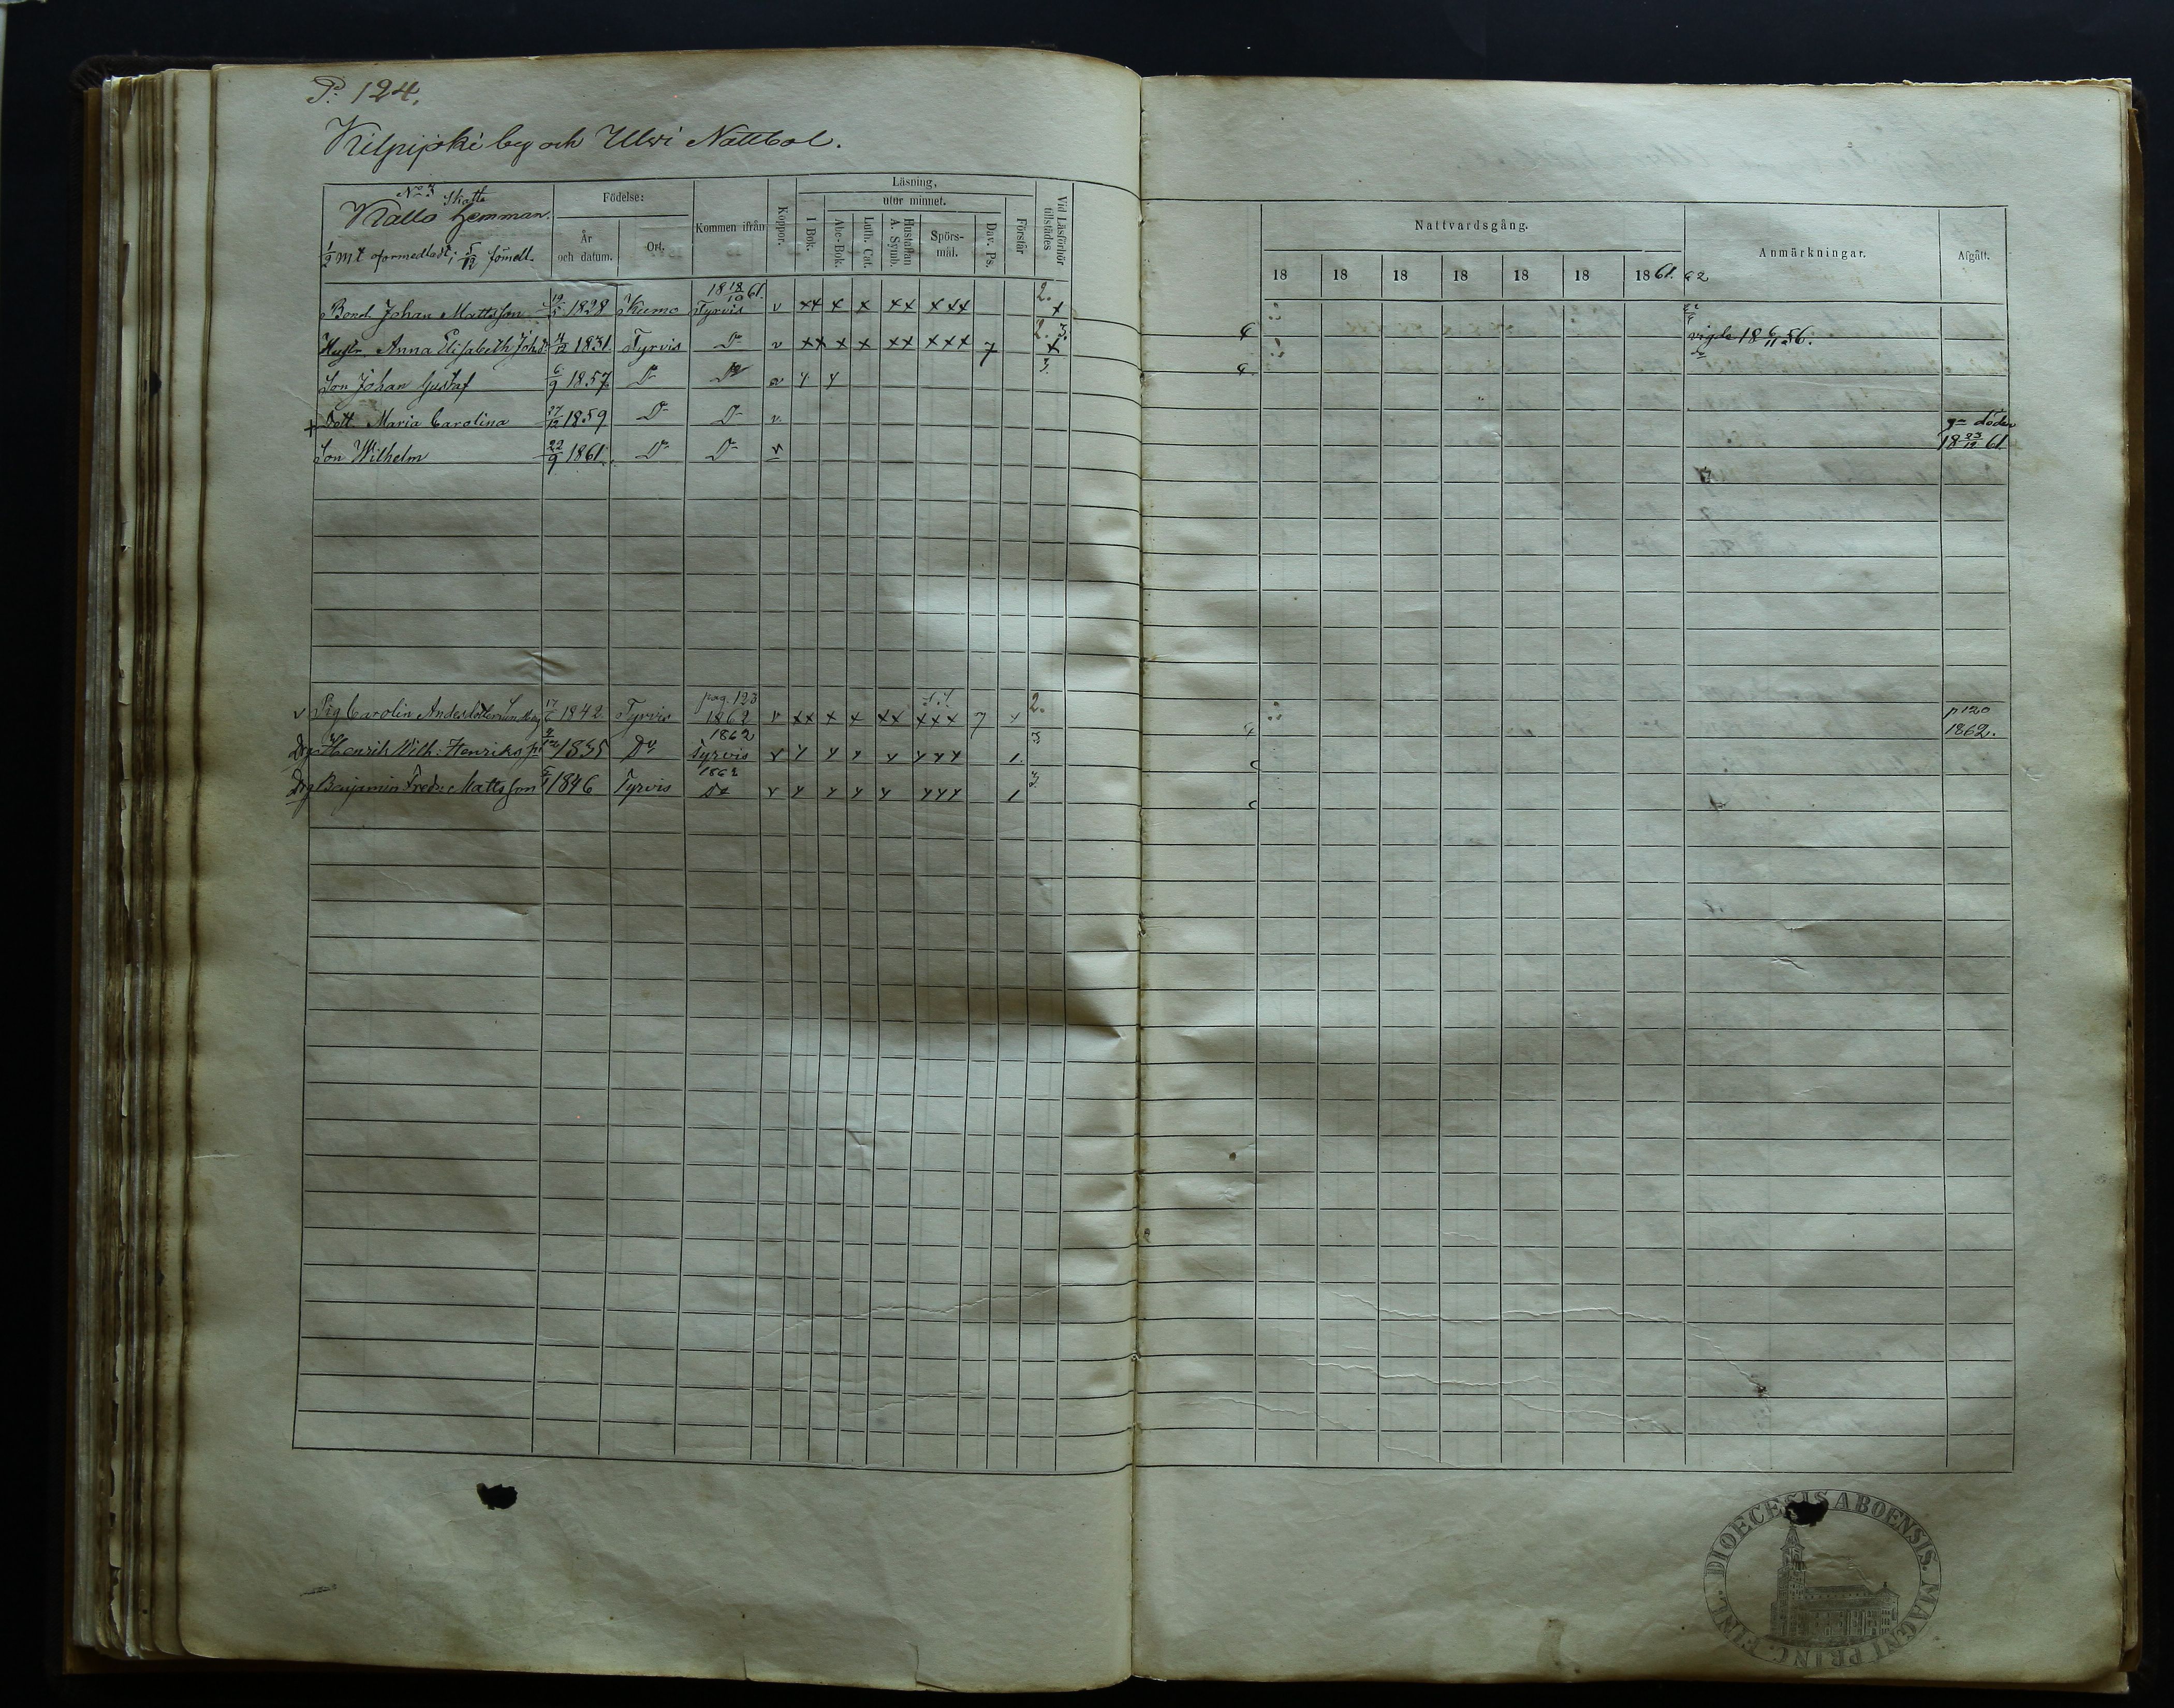 P. 124.
Kilpijoki by och Ulvi Nattbol.
No 3 Skatte
Kallo hemman.
1/2 mt oförmedladt; 5/12 förmedl.
Födelse:
År och datum.
Ort.
Kommen ifrån
Koppor.
Läsning,
utur minnet.
I Bok.
Abc-Bok.
Luth. Cat.
Hustaflan A. Symb.
Spörs-mål.
Dav. Ps.
Förstår
Vid Läsförhör tillstädes
Nattvardsgång.
18 18 18 18 18 18 1861. 62
Anmärkningar.
Afgått.
Bond. Johan Mattsson 19/5 1828 Kumo 18 18/10 61. Tyrvis v xx x x xx xxx 2. x
Hustr. Anna Elisabeth Johsdr 4/12 1831 Tyrvis Do v xx x x xx xxx 7 2. 3. x vigde 18 6/11 56.
Son Johan Gustaf 6/9 1857 Do Do v y y 3.
+ Dott. Maria Carolina 27/12 1859 Do Do v. gm döden 18 23/12 61.
Son Wilhelm 22/9 1861. Do Do v
v Pig Carolin Andersdotter 17/6 1842 Tyrvis pag. 123 1862 v xx x x xx xxx 7 x 2. p 120 1862.
Drg Henrik Wilh. Henriksp. 9/12 1835 Do 1862 Tyrvis v y y y y yyy 1. 3
Drg Benjamin Fredr. Mattsson 1846 Tyrvis 1862 Do v y y y y yyy 1 3
DIOECESIS ABOENSIS. MAGNI PRINC. FINL.